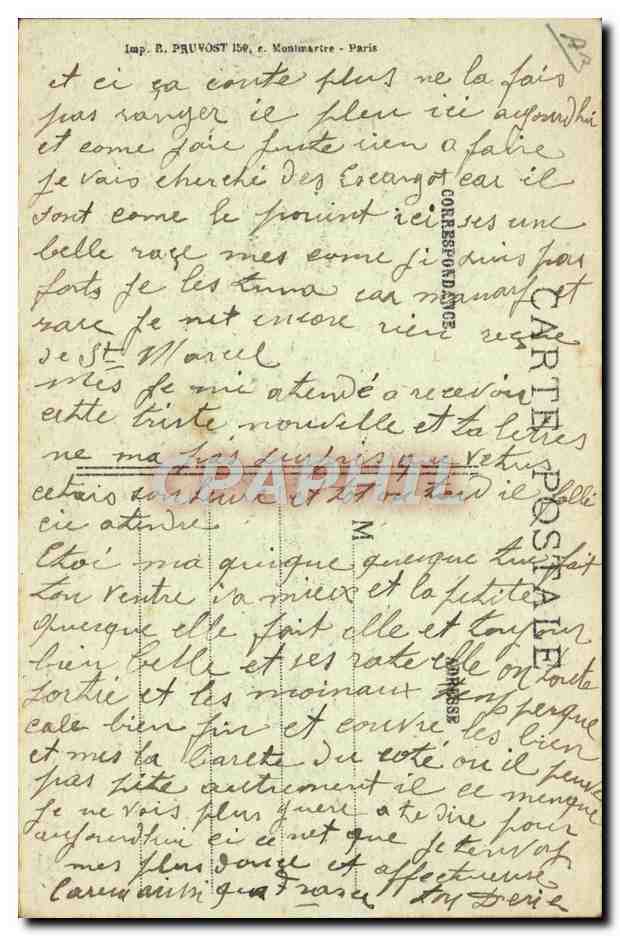 Imp. R. PRUVOST 159, r. Montmartre - Paris
et ci ça conte plus ne la fais
pas ranger il pleu ici aujourdhui
et come jaie juste rien a faire
je vais cherché des Escargot car il
sont come le pouint ici ses une
belle race mes come ji suis pas
forts je les car et
rare je net encore rien reçue
de St Marcel
mes je mi atendé a recevoir
cette triste nouvelle et ta lettres
ne ma pas surpris que
cetais son heure et tot ou tard il falli
cie atendre
Etoi ma quique quesque tu fait
ton ventre i va mieux et la petite
quesque elle fait elle et toujour
bien belle et ses rate elle on toute
sortie et les moinaux
cale bien fin et couvre les bien
et mes la du coté ou il peuve
pas pite autrement il ce menque
Je ne vois plus guere a te dire pour
aujourdhui ci ce net que je tenvoy
mes plus douce et affectueuse
Caresse aussi qua France ton
CARTE POSTALE
CORRESPONDANCE
ADRESSE
M
CPAPHIL